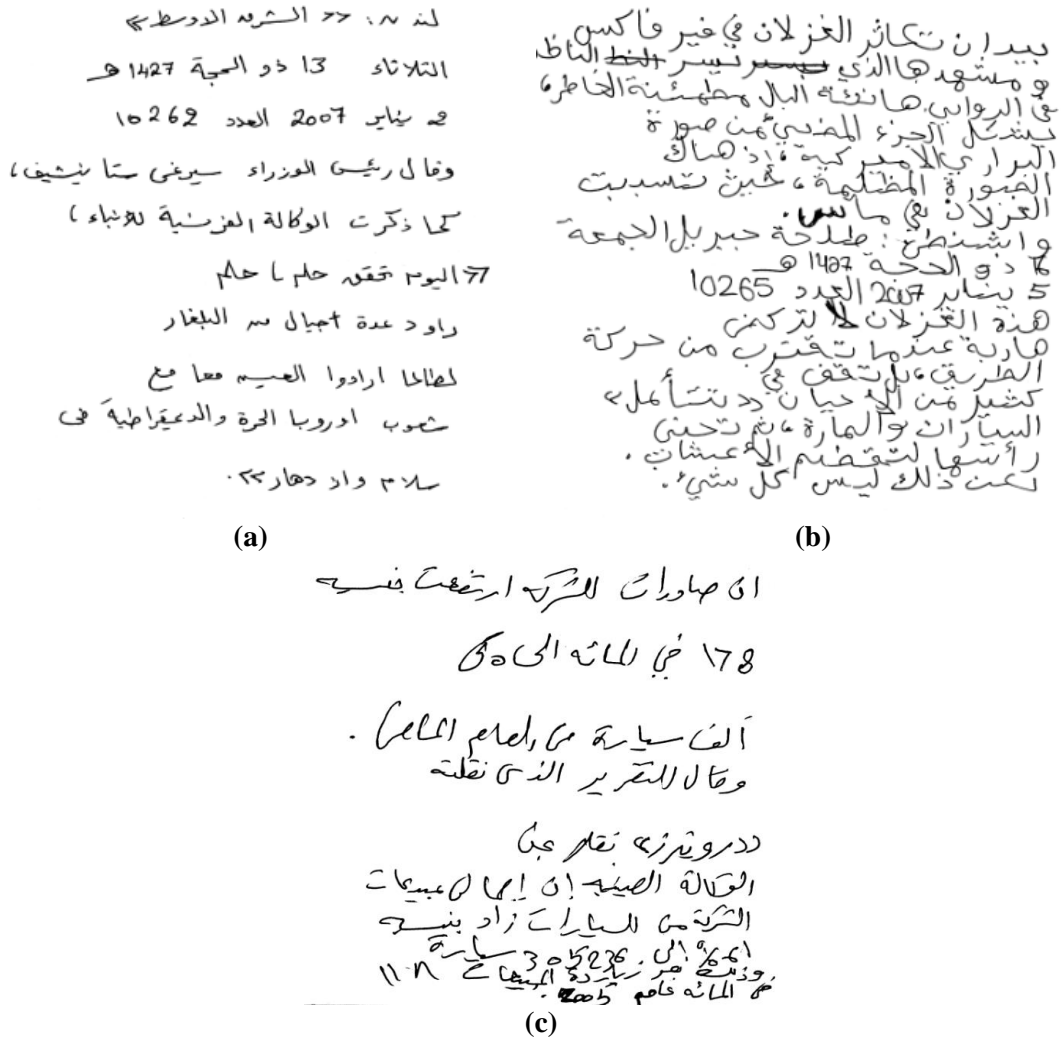 لندن: << الشرق الاوسط >>
الثلاثاء 13 ذو الحجة 1427 هـ
2 يناير 2007 العدد 10262
وقال رئيس الوزراء سيرغى ستانيشيف،
كما ذكرت الوكالة الفرنسية للانباء،
<< اليوم تحقق حلم ما حلم
راود عدة أجيال من البلغار
لطالما ارادوا العيش معا مع
شعوب اوروبا الحرة والديمقراطية فى
سلام وازدهار >>.
(a)
بيد ان تكاثر الغزلان في فيرفاكس
و مشهدها الذي يسر الناظر
في الروابي هانئة البال مطمئنة الخاطر،
يشكل الجزء المضيئ من صورة
البراري الاميركية، إذ هناك
الصورة المظلمة، حين تسببت
الغزلان في مآس.
واشنطن: طلحة جبريل الجمعة
16 ذو الحجة 1427 هـ
5 يناير 2007 العدد 10265
هذه الغزلان لا تركض
هاربة عندما تقترب من حركة
الطريق، بل تقف في
كثير من الأحيان << تتأمل >>
السيارات والمارة، ثم تحني
رأسها لتقضم الأعشاب.
لكن ذلك ليس كل شيء.
(b)
ان صادرات الشركة ارتفعت بنسبه
178 في المائه الى
ألف سيارة من العام الماضى.
وقال التقرير الذى نقلته
<< رويترز >> نقلا عن
الوكالة الصينيه إن إجمالى مبيعات
الشركة من السيارات زاد بنسبه
الى 305236 سيارة
وذلك زيادة المبيعات
فى المائه عام 2005.
(c)